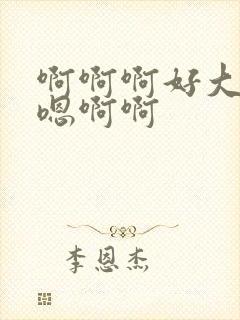 啊啊啊好大
嗯啊啊
李恩杰